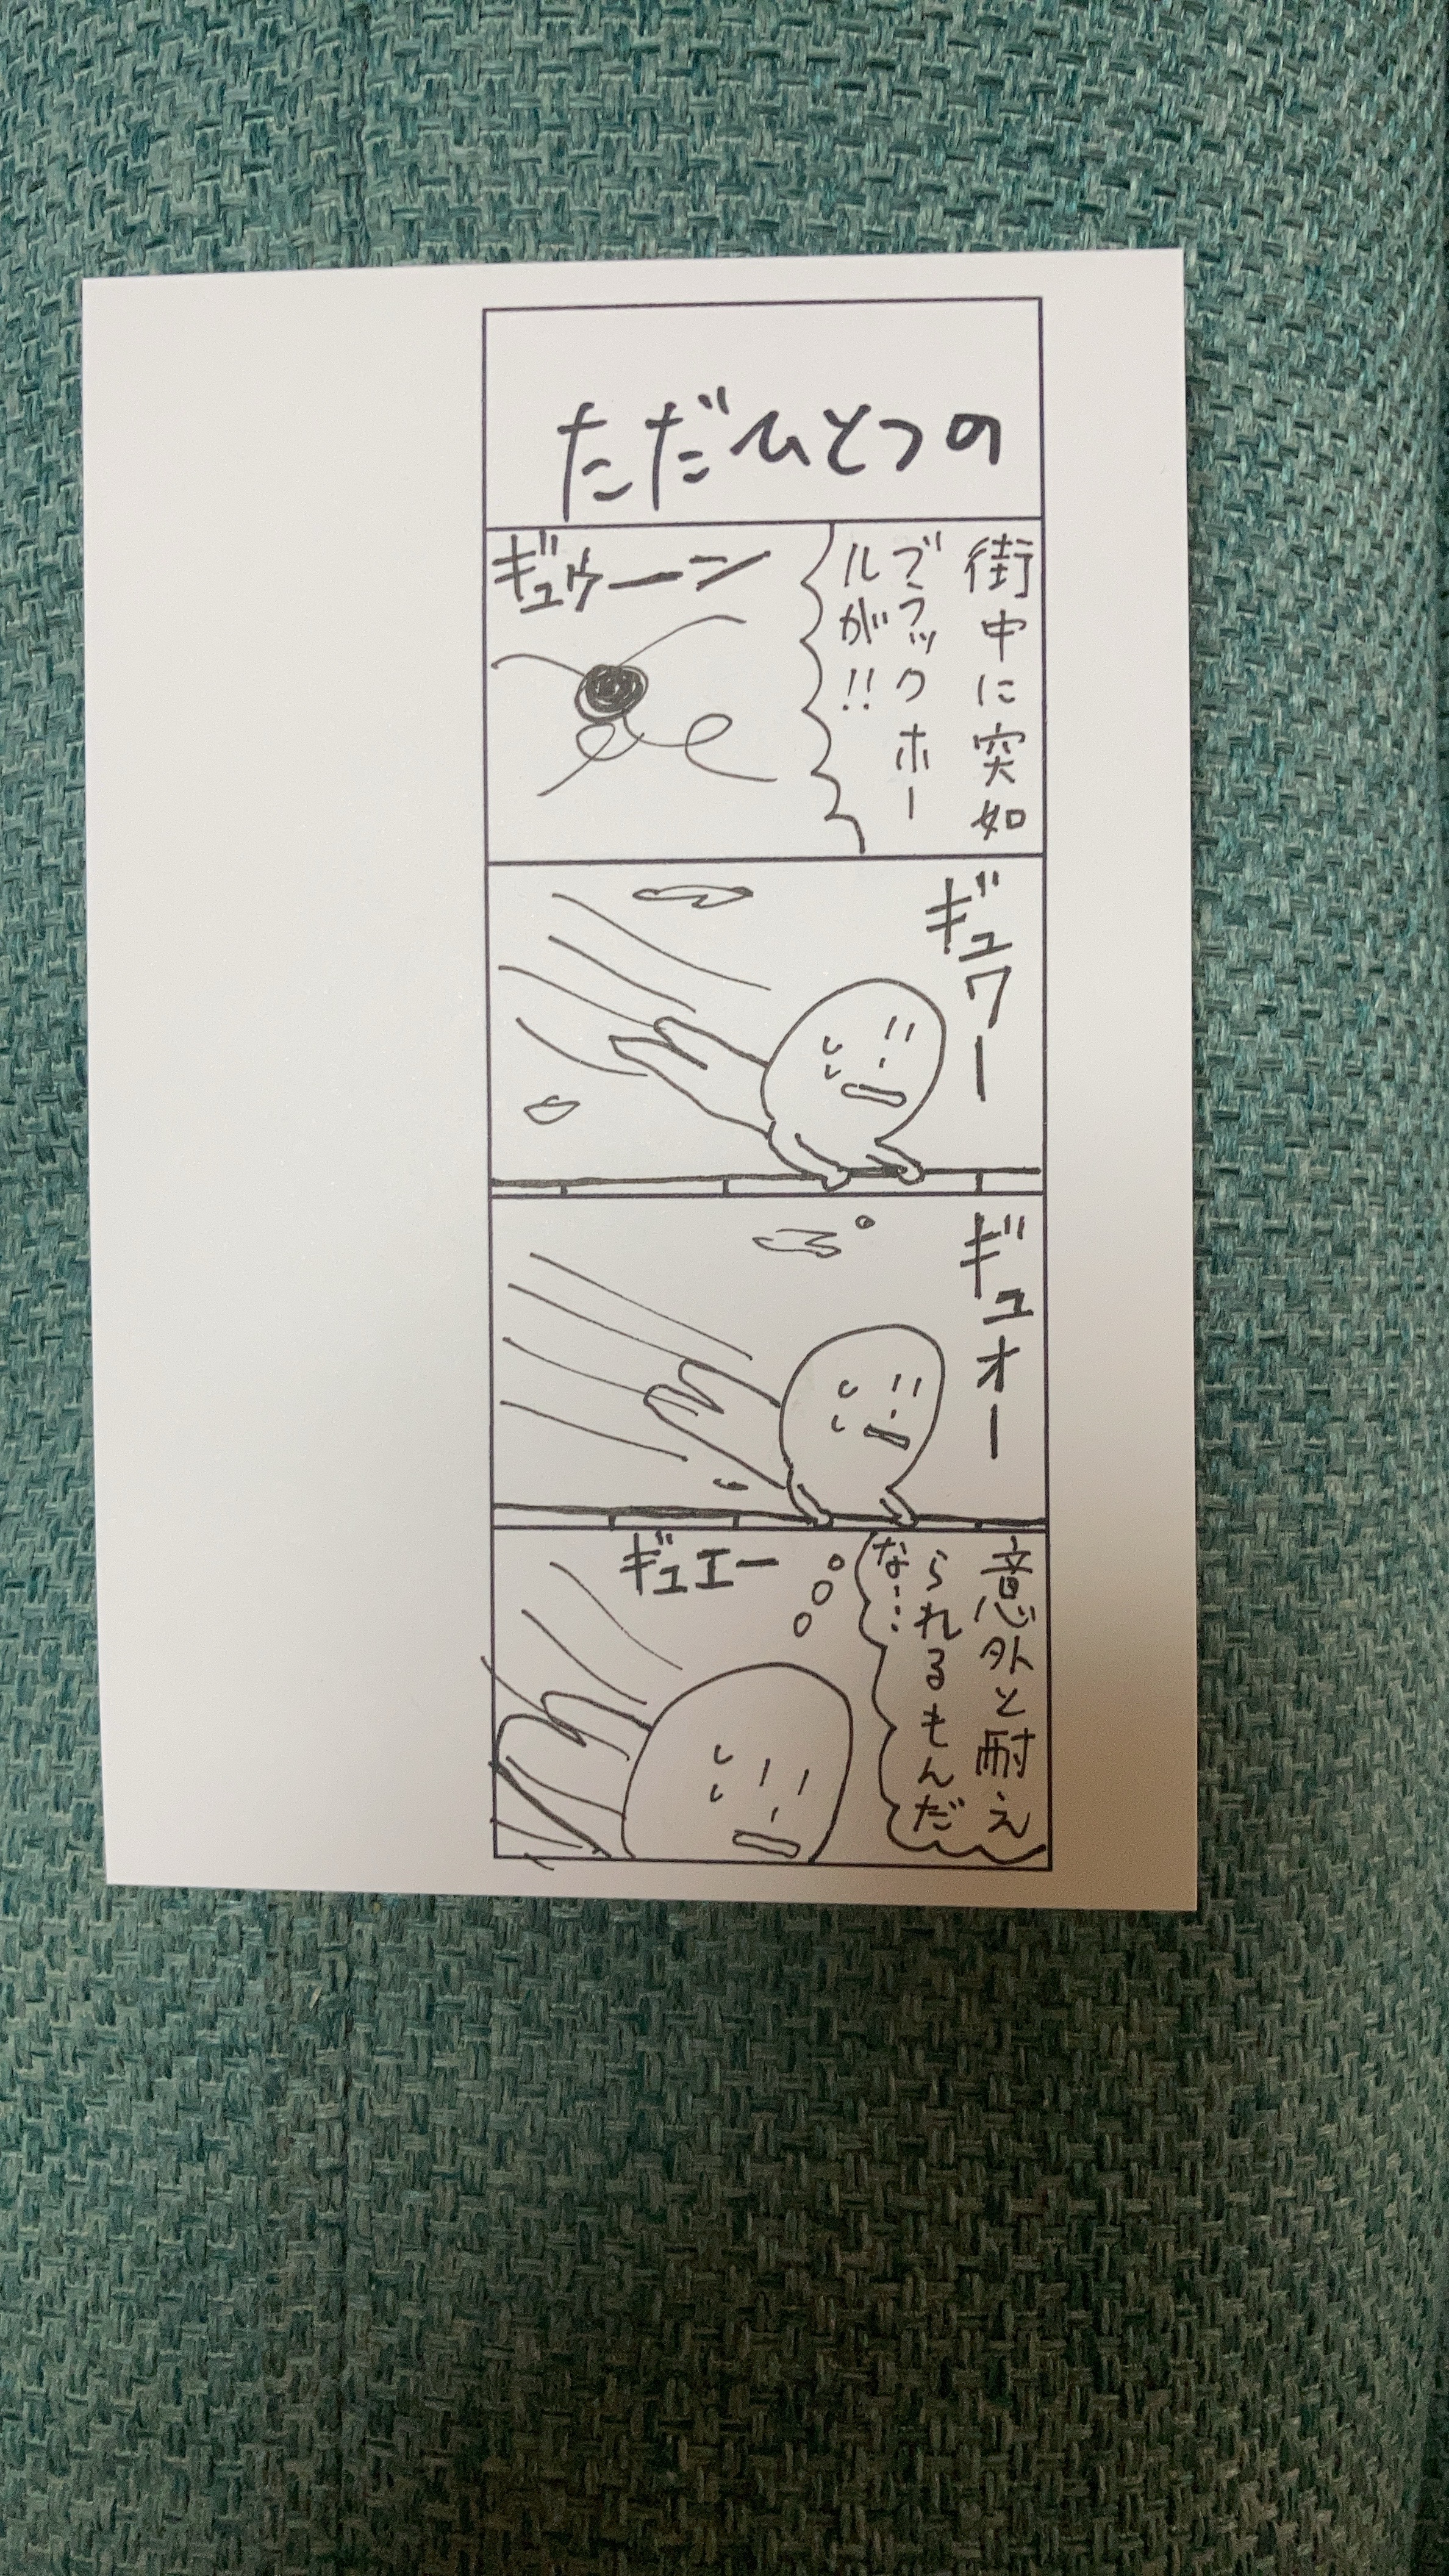 ただひとつの
街中に突如
ブラックホー
ルが!!
ギュゥーン
ギュワー
ギュオー
意外と耐え
られるもんだ
な…
ギュエー